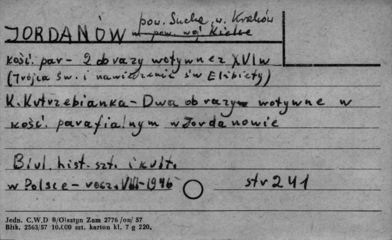 JORDANÓW pow. Sucha, w. Kraków
w pow. woj Kielce
kość. par - 2 obrazy wotywne z XVI w
(Trójca św. i nawiedzenie św Elżbiety)
K. Kutrzebianka - Dwa obrazy wotywne w
kość. parafialnym w Jordanowie
Biul. hist. szt. i kult.
w Polsce - rocz. VIII - 1946 str 241
Jedn. C.W.D 8/Olsztyn Zam 2776/an/57
Bltk. 2563/57 10.000 szt. karton kl. 7 g 220.